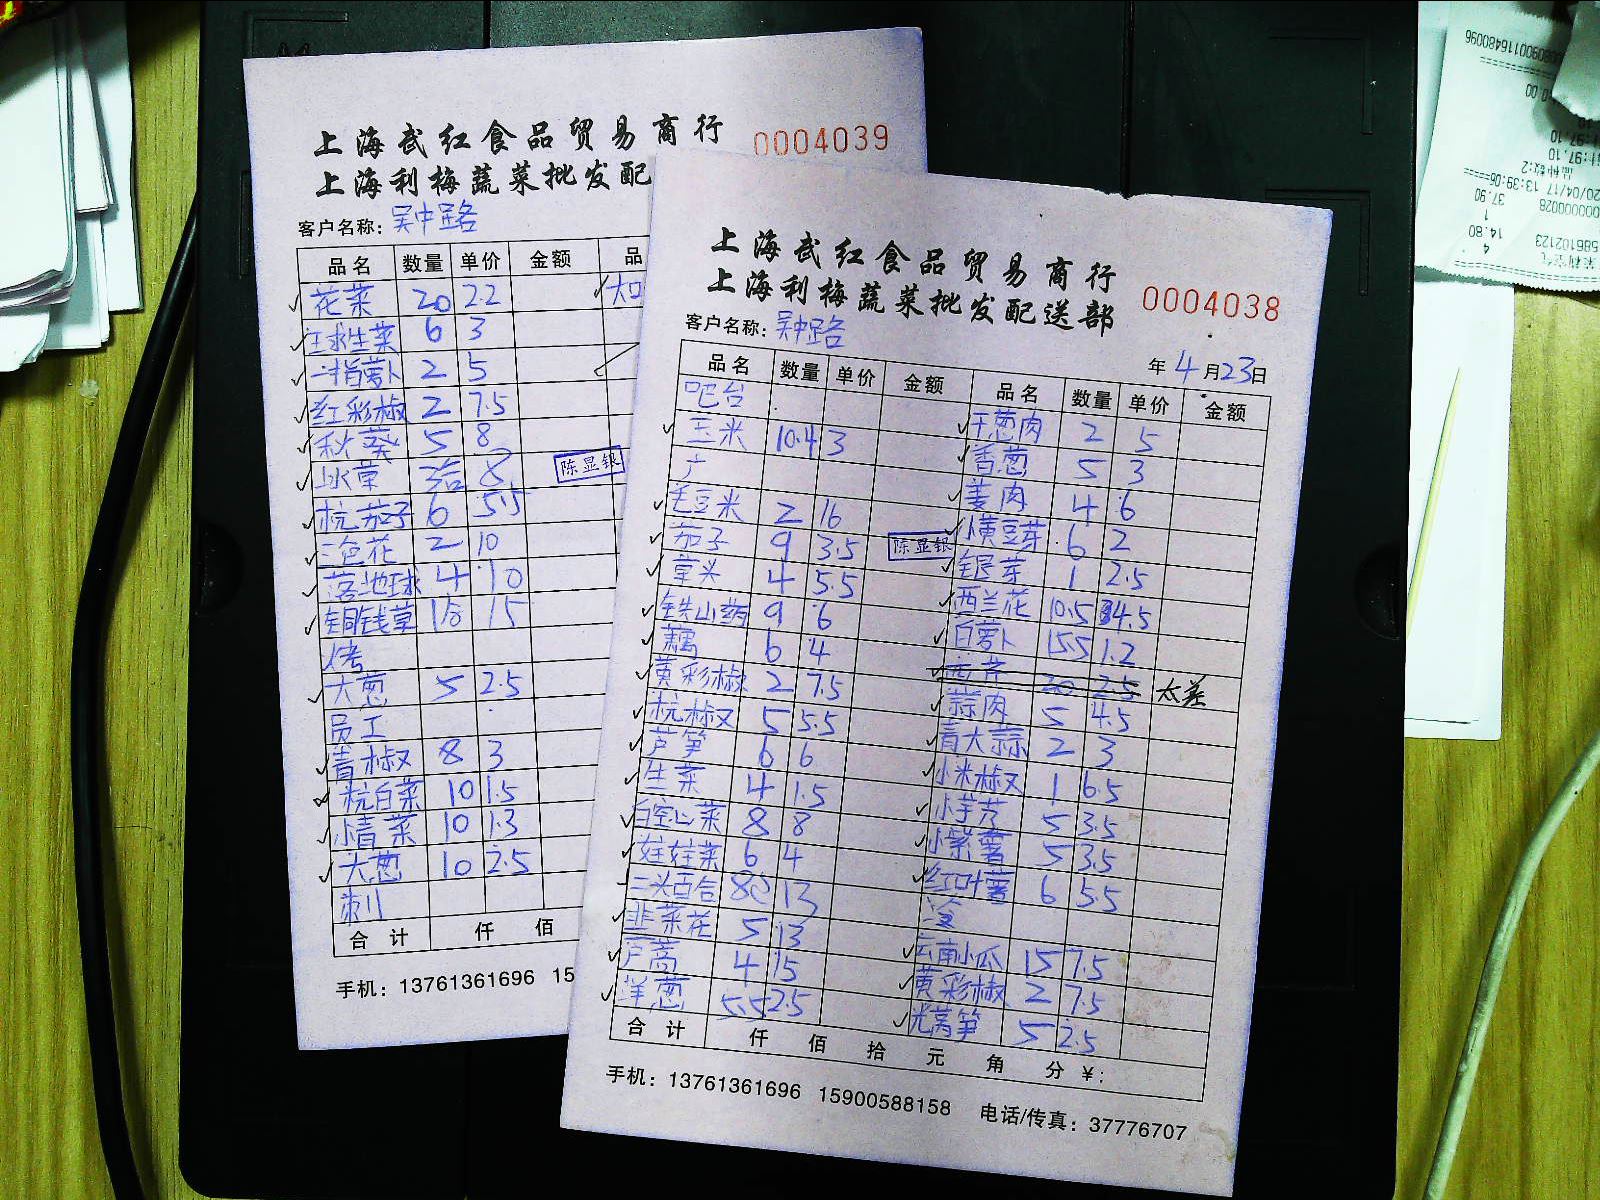 上海武红食品贸易商行 0004039
上海利梅蔬菜批发配
客户名称：吴中路
品名 数量 单价 金额 品
花菜 20 22
球生菜 6 3
手指萝卜 2 5
红彩椒 2 7.5
秋葵 5 8
冰草 8
陈显银
杭茄子 6 5.5
三色花 2 10
落地球 4 10
铜钱草 1合 15
烤
大葱 5 2.5
员工
青椒 8 3
杭白菜 10 1.5
小青菜 10 1.3
大葱 10 2.5
刺
合计 仟 佰
手机：13761361696 15
上海武红食品贸易商行
上海利梅蔬菜批发配送部 0004038
客户名称：吴中路
年4月23日
品名 数量 单价 金额 品名 数量 单价 金额
吧台 干葱肉 2 5
玉米 10.4 3 香葱 5 3
广 姜肉 4 6
毛豆米 2 16 小黄豆芽 6 2
茄子 9 3.5 陈显银 银芽 1 2.5
草头 4 5.5 西兰花 10.5 4.5
铁山药 9 6 白萝卜 15.5 1.2
藕 6 4 西芹 20 2.5 太差
黄彩椒 2 7.5 蒜肉 5 4.5
杭椒 5 5.5 青大蒜 2 3
芦笋 6 6 小米椒 1 6.5
生菜 4 1.5 小芋艿 5 3.5
白空心菜 8 8 小紫薯 5 3.5
娃娃菜 6 4 红叶薯 6 5.5
二头百合 80 13
韭菜花 5 13 云南小瓜 15 7.5
芦蒿 4 15 黄彩椒 2 7.5
洋葱 5.5 2.5 光莴笋 5 2.5
合计 仟 佰 拾 元 角 分 ¥：
手机：13761361696 15900588158 电话/传真：37776707